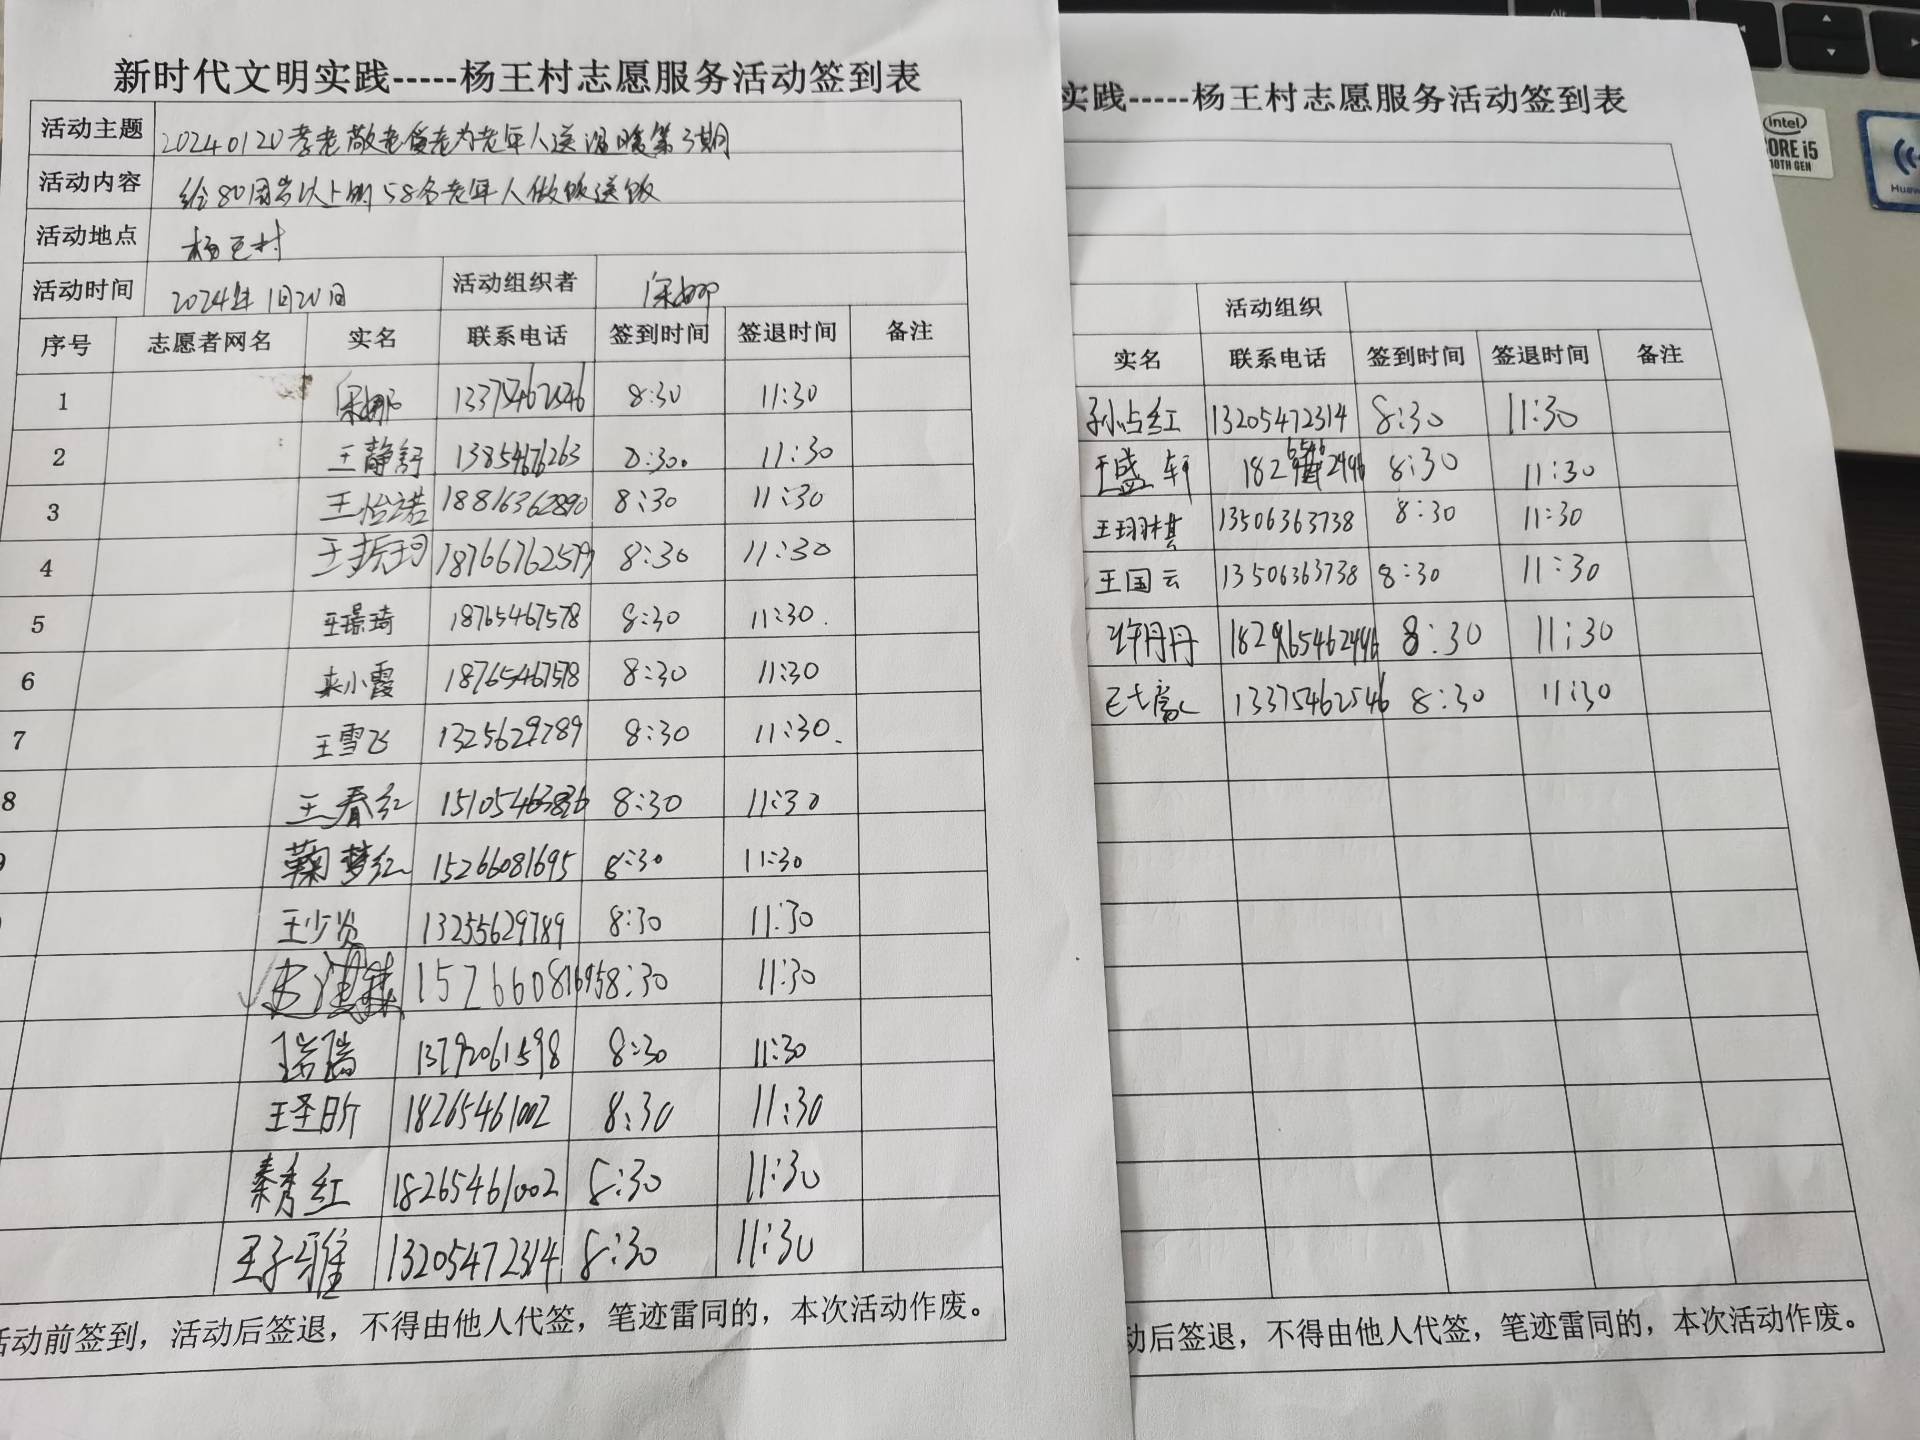 新时代文明实践-----杨王村志愿服务活动签到表
活动主题 20240120孝老敬老爱老为老年人送温暖第3期
活动内容 给80周岁以上的58名老年人做饭送饭
活动地点 杨王村
活动时间 2024年1月20日 活动组织者 宋娜
序号 志愿者网名 实名 联系电话 签到时间 签退时间 备注
1 宋娜 13375462546 8:30 11:30
2 王静舒 13854676263 8:30. 11:30
3 王怡诺 18816362890 8:30 11:30
4 王振珂 18766762579 8:30 11:30
5 王璟琦 18765467578 8:30 11:30.
6 来小霞 18765467578 8:30 11:30
7 王雪飞 1325629789 8:30 11:30.
8 王春红 15105463836 8:30 11:30
鞠梦红 15266081695 8:30 11:30
王少贤 13255629789 8:30 11:30
15266081695 8:30 11:30
13792061598 8:30 11:30
王圣昕 18265461002 8:30 11:30
秦秀红 18265461002 8:30 11:30
王子雅 13205472314 8:30 11:30
活动前签到，活动后签退，不得由他人代签，笔迹雷同的，本次活动作废。
实践-----杨王村志愿服务活动签到表
活动组织
实名 联系电话 签到时间 签退时间 备注
孙占红 13205472314 8:30 11:30
王盛轩 8:30 11:30
王翊棋 13506363738 8:30 11:30
王国云 13506363738 8:30 11:30
许丹丹 8:30 11:30
13375462546 8:30 11:30
动后签退，不得由他人代签，笔迹雷同的，本次活动作废。
intel
CORE i5
10TH GEN
Huawei
Alt